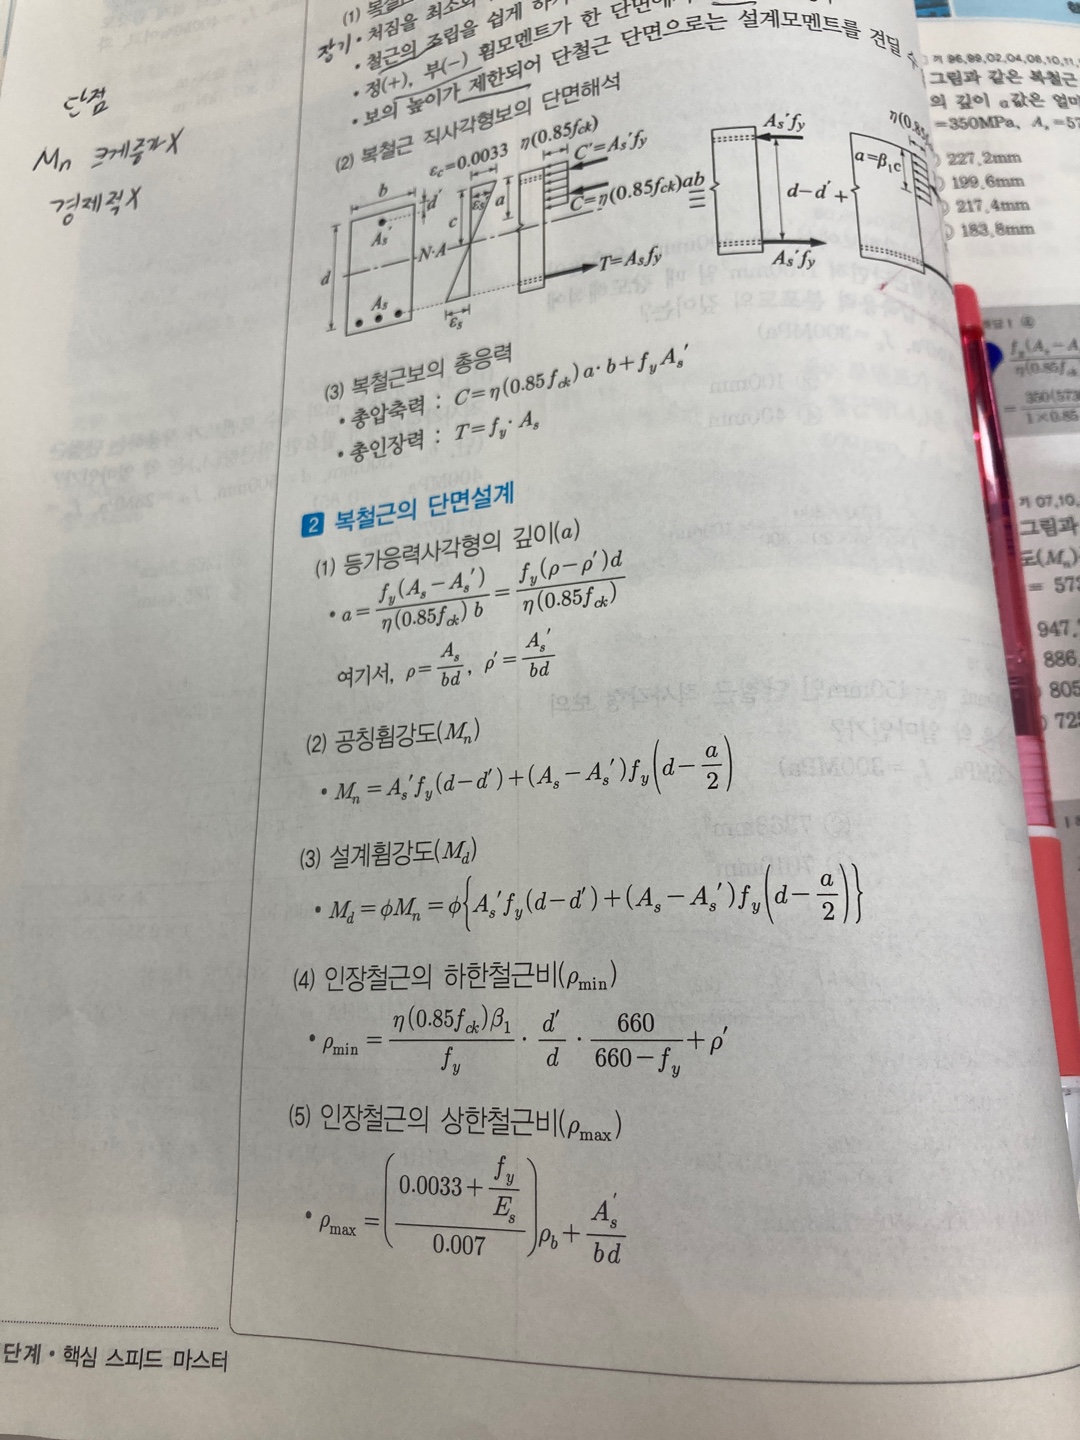 단점
Mn 크게증가X
경제적X
(1) 복철근
장기 • 처짐을 최소화
• 철근의 조립을 쉽게 하기
• 정(+), 부(−) 휨모멘트가 한 단면에
• 보의 높이가 제한되어 단철근 단면으로는 설계모멘트를 견딜 수
(2) 복철근 직사각형보의 단면해석
b
d
d′
As′
As
N·A
εc=0.0033
εs′
εs
c
a
η(0.85fck)
C′=As′fy
C=η(0.85fck)ab
T=Asfy
≡
As′fy
d−d′
As′fy
+
a=β1c
(3) 복철근보의 총응력
• 총압축력 : C=η(0.85fck)a·b+fyAs′
• 총인장력 : T=fy·As
2 복철근의 단면설계
(1) 등가응력사각형의 깊이(a)
• a = fy(As−As′) / η(0.85fck)b = fy(ρ−ρ′)d / η(0.85fck)
여기서, ρ= As / bd, ρ′= As′ / bd
(2) 공칭휨강도(Mn)
• Mn = As′fy(d−d′)+(As−As′)fy(d− a/2)
(3) 설계휨강도(Md)
• Md = ϕMn = ϕ{As′fy(d−d′)+(As−As′)fy(d− a/2)}
(4) 인장철근의 하한철근비(ρmin)
• ρmin = η(0.85fck)β1 / fy · d′/d · 660 / 660−fy + ρ′
(5) 인장철근의 상한철근비(ρmax)
• ρmax = ((0.0033+ fy/Es) / 0.007)ρb + As′ / bd
단계 • 핵심 스피드 마스터
기 96,99,02,04,08,10,11,
그림과 같은 복철근
의 깊이 a값은 얼마
=350MPa, As=57
227.2mm
199.6mm
217.4mm
183.8mm
기 07,10,
그림과
도(Mn)
= 573
947.
886.
805
725